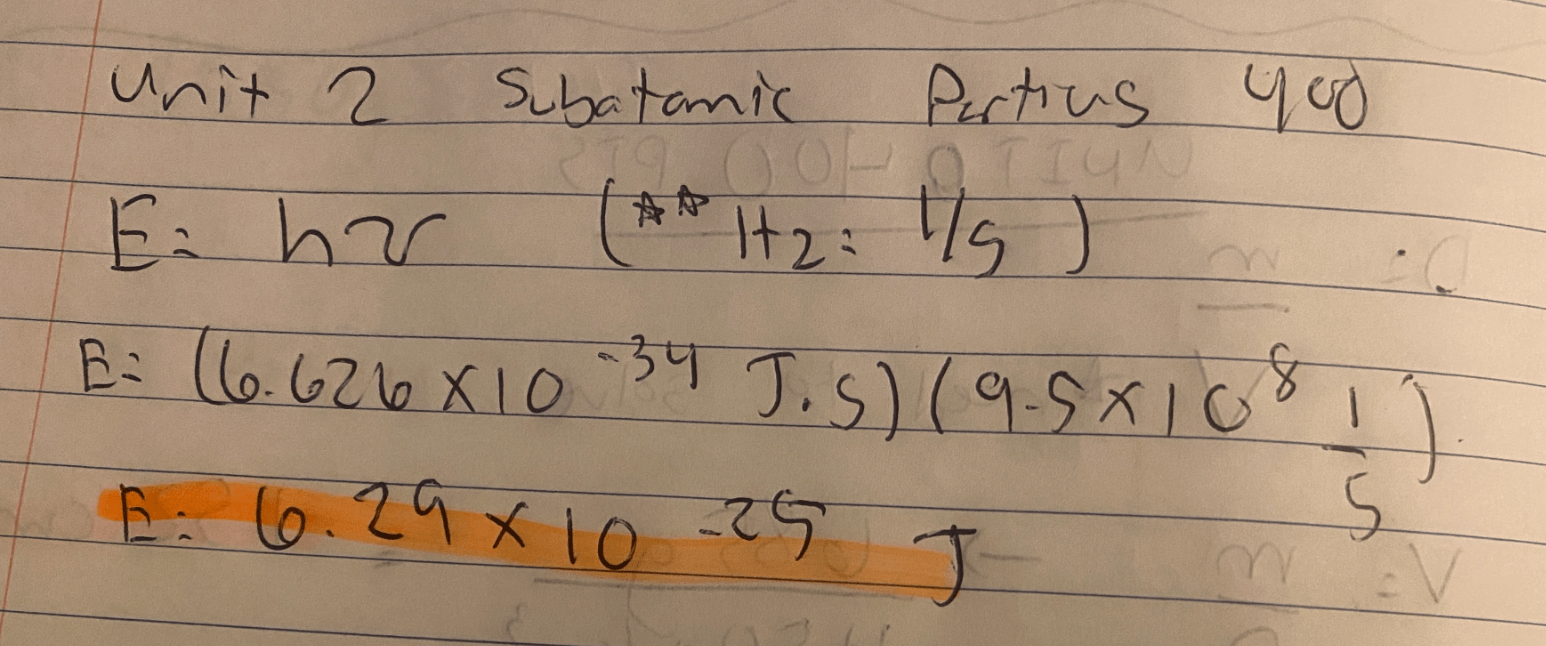 Unit 2 Subatomic Particles 400
E = hν (☆☆ Hz = 1/s)
E = (6.626 x 10⁻³⁴ J.s) (9.5 x 10⁸ 1/s)
E = 6.29 x 10⁻²⁵ J